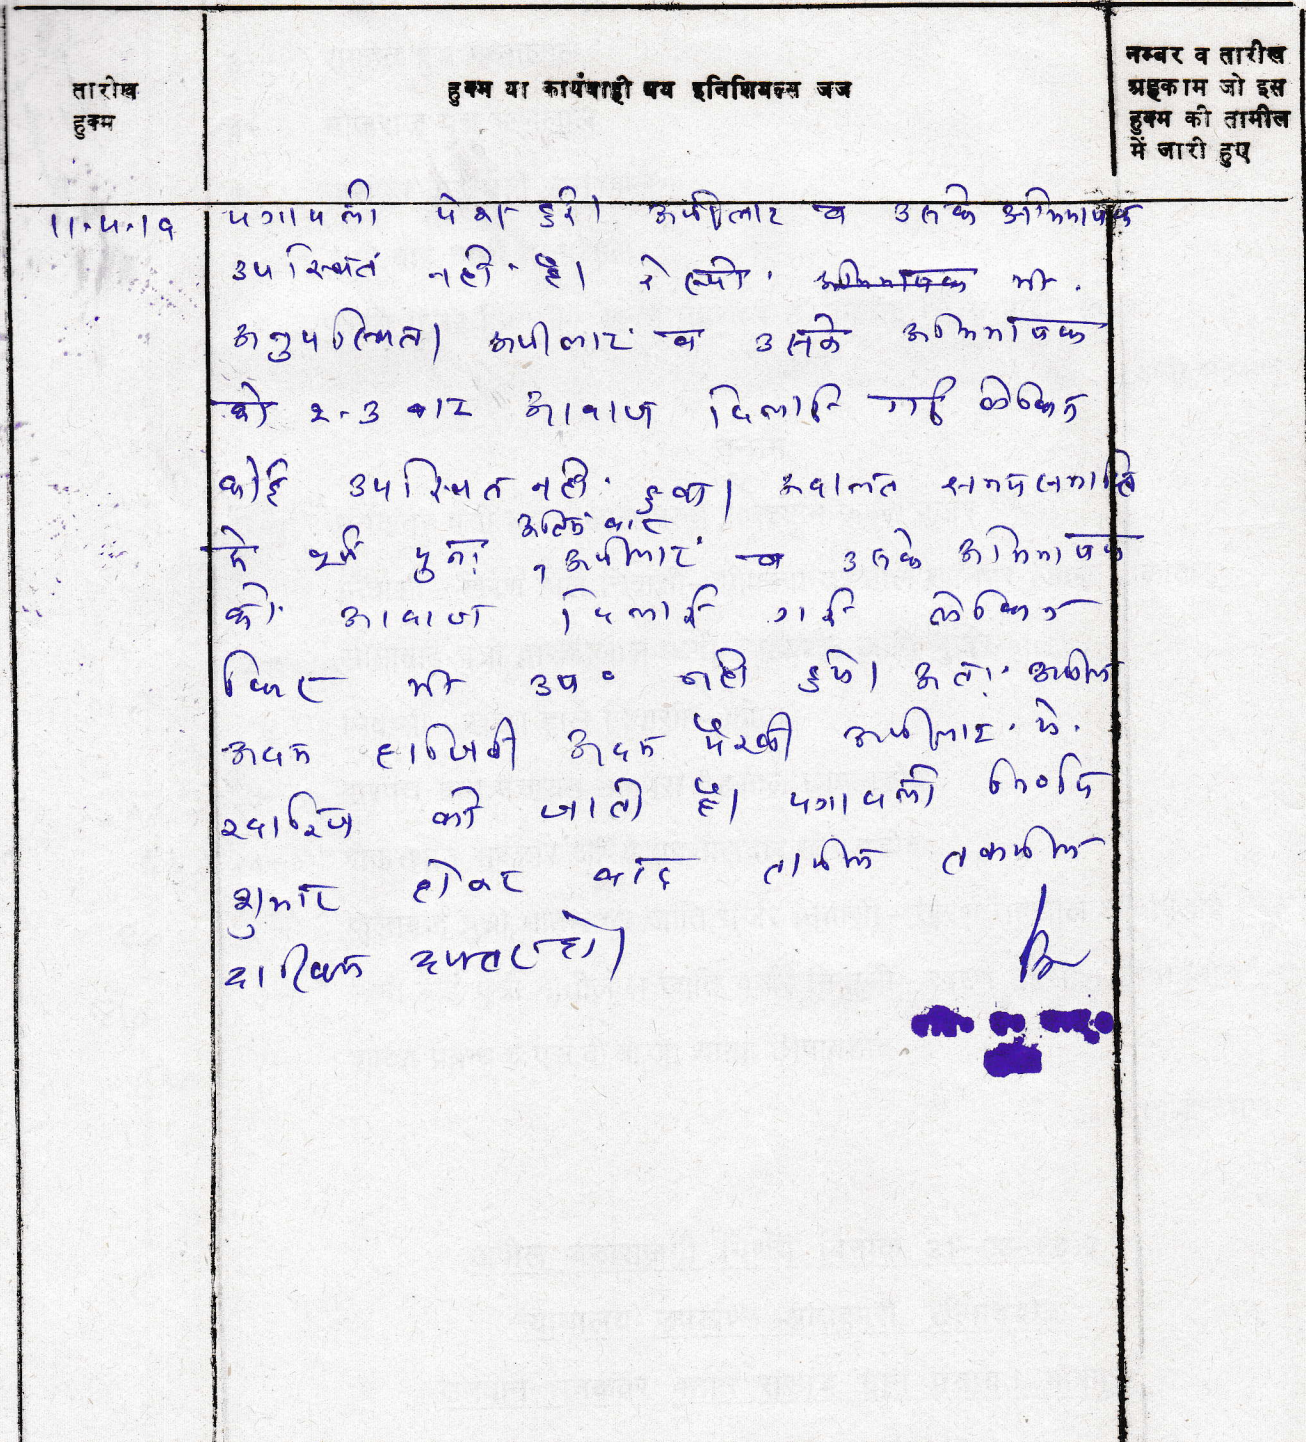 तारीख
हुक्म
हुक्म या कार्यवाही मय इनिशियल्स जज
नम्बर व तारीख
अहकाम जो इस
हुक्म की तामील
में जारी हुए
पत्रावली पेश हुई। अपीलांट व उसके अभिभाषक
उपस्थित नहीं है। रेस्पो. भी
अनुपस्थित। अपीलांट व उसके अभिभाषक
को २-३ बार आवाज दिलाई गई लेकिन
कोई उपस्थित नहीं हुआ। अदालत समय समाप्ति
से पूर्व पुनः अंतिम बार अपीलांट व उसके अभिभाषक
को आवाज दिलाई गई लेकिन
फिर भी उप० नहीं हुये। अतः अपील
अदम हाजिरी अदम पैरवी अपीलांट में
खारिज की जाती है। पत्रावली
शुमार होकर बाद तामील तकमील
दाखिल दफ्तर हो।